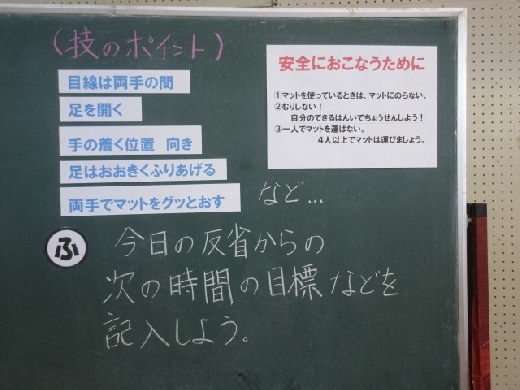 (技のポイント)
目線は両手の間
足を開く
手の着く位置 向き
足はおおきくふりあげる
両手でマットをグッとおす
など…
安全におこなうために
①マットを使っているときは、マットにのらない。
②むりしない!
自分のできるはんいでちょうせんしよう!
③一人でマットを運ばない。
4人以上でマットは運びましょう。
ふ
今日の反省からの
次の時間の目標などを
記入しよう。